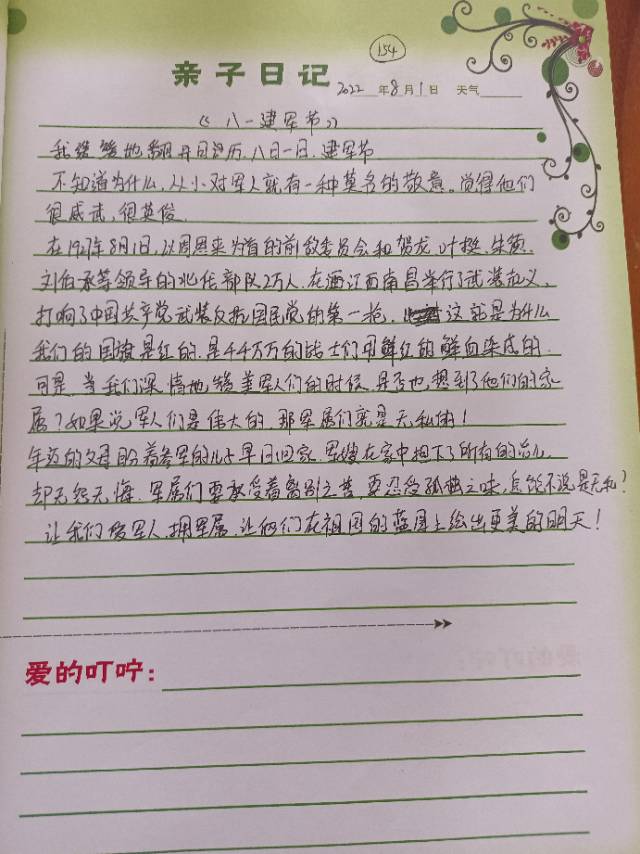 154
亲子日记
2022年8月1日 天气
《八一建军节》
我缓缓地翻开日历,八月一日,建军节
不知道为什么,从小对军人就有一种莫名的敬意。觉得他们
很威武,很英俊.
在1927年8月1日,以周恩来为首的前敌委员会和贺龙,叶挺,朱德,
刘伯承等领导的北伐部队2万人,在江西南昌举行了武装起义,
打响了中国共产党武装反抗国民党的第一枪, 这就是为什么
我们的国旗是红的,是千千万万的战士们用鲜红的鲜血染成的.
可是,当我们深情地赞美军人们的时候,是否也想到了他们的家
属?如果说军人们是伟大的,那军属们就是无私的!
年迈的父母盼着参军的儿子早日回家.军嫂在家中担下了所有的
却无怨无悔.军属们要承受着离别之苦,更忍受孤独之味,怎能不说是无私?
让我们爱军人,拥军属,让他们在祖国的蓝图上绘出更美的明天!
爱的叮咛: